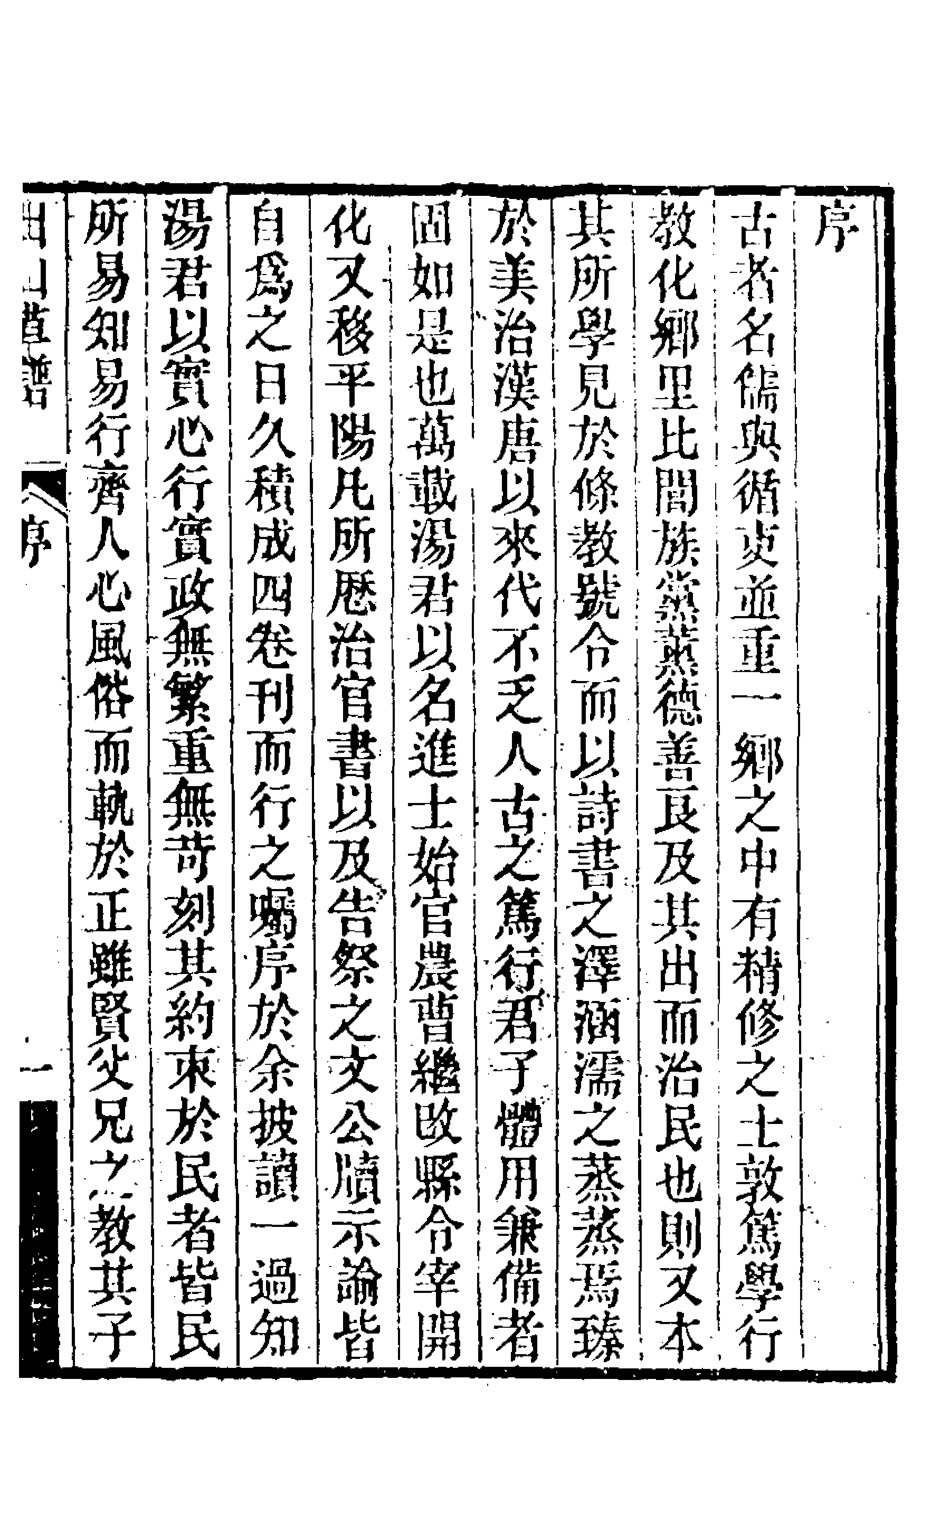 序
古者名儒與循吏並重一鄉之中有精修之士敦篤學行
教化鄉里比閭族黨薰德善良及其出而治民也則又本
其所學見於條教號令而以詩書之澤涵濡之蒸蒸焉臻
於美治漢唐以來代不乏人古之篤行君子體用兼備者
固如是也萬載湯君以名進士始官農曹繼改縣令宰開
化又移平陽凡所歷治官書以及告祭之文公牘示諭皆
自爲之日久積成四卷刊而行之囑序於余披讀一過知
湯君以實心行實政無繁重無苛刻其約束於民者皆民
所易知易行齊人心風俗而軌於正雖賢父兄之教其子
出山草譜
序
一